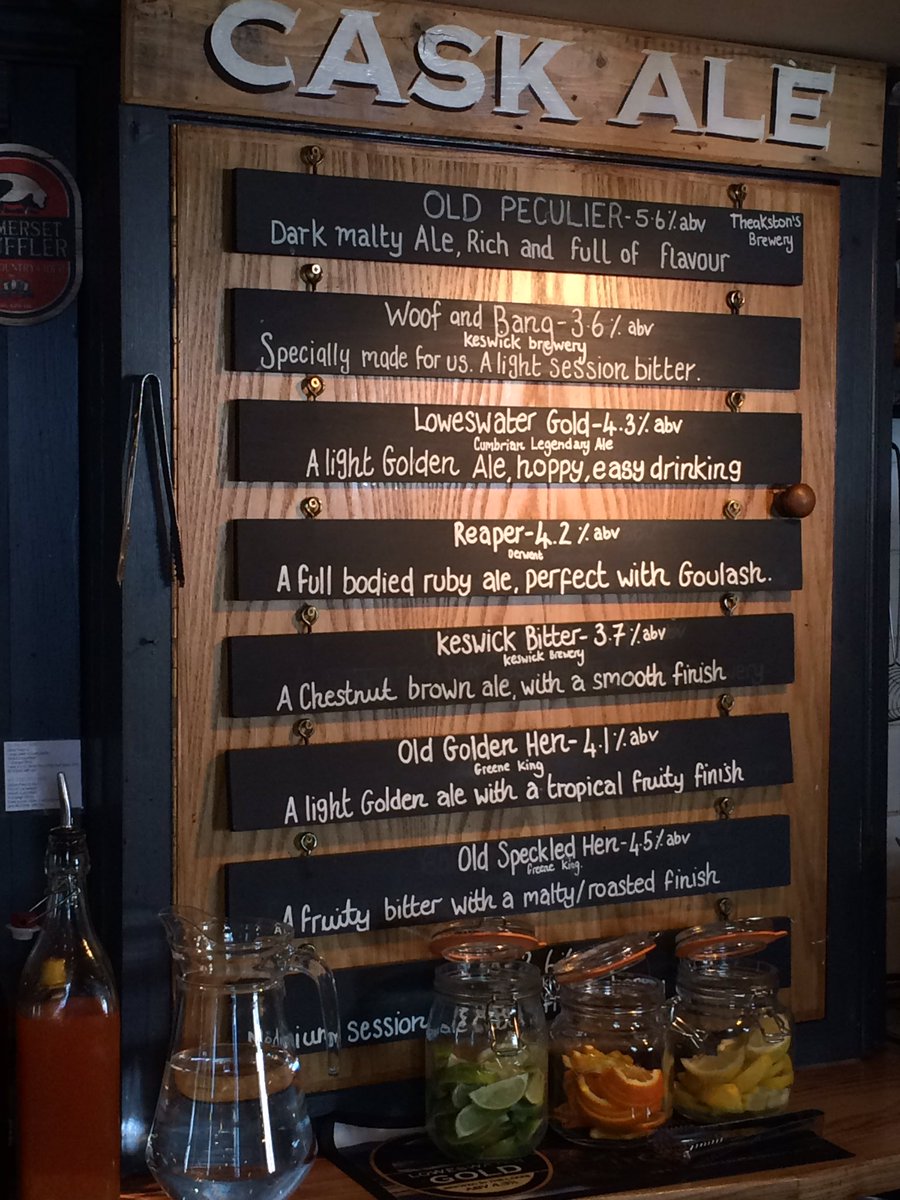 CASK ALE
OLD PECULIER-5.6% abv
Theakston's
Brewery
Dark malty Ale, Rich and full of flavour
Woof and Bang-3.6% abv
Keswick brewery
Specially made for us. A light session bitter.
Loweswater Gold-4.3% abv
Cumbrian Legendary Ale
A light Golden Ale, hoppy, easy drinking
Reaper-4.2% abv
Derwent
A full bodied ruby ale, perfect with Goulash.
Keswick Bitter-3.7% abv
Keswick Brewery
A Chestnut brown ale, with a smooth finish
Old Golden Hen-4.1% abv
Greene King
A light Golden ale with a tropical fruity finish
Old Speckled Hen-4.5% abv
Greene King.
A fruity bitter with a malty/roasted finish
session
GOLD